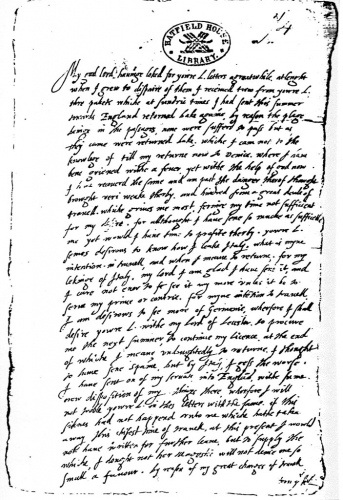 HATFIELD HOUSE
LIBRARY.
My good lord, havinge loked for youre L. letters a greatwhile, at lengthe
when I grew to dispaire of them I receaved two from youre L.
thre packets whiche at sundrie times I had sent this summer
towards England returned bake againe by reason the plage
beinge in the passages, none were suffered to pass but as
they came were returned bake, whiche I cam not to the
knowlege of till my returne now to Venice. where I have
bene greeved withe a fever, yet withe the help of god now
I have recovred the same and am past the danger therof though
brought veri weake therby, and hindred from a great deale of
travell. whiche greeves me most, fearinge my time not sufficient
for my desire. for althoughe I have sene so muche as sufficethe
me yet would I have time to profite therby. youre L.
semes desirous to know how I leeke Italy, what is myne
intention in travell, and when I meane to returne. for my
leking of Italy, my lord I am glad I have sene it, and
I care not ever to se it any more unles it be to
serve my prince or contrie. for myne intention to travell,
I am desirous to see more of Germanie, wherfore I shall
desire youre L. withe my lord of Leicester, to procure
me the next summer to continew my licence, at the end
of whiche I meane undoubtedly to returne. I thought
to have sene Spane, but by Italy, I gess the worse.
I have sent on of my servans into England withe sume
new disposition of my things there, wherfore I will
not troble youre L. in thes letters withe the same. if this
siknes had not happened unto me whiche hathe taken
away this chifest time of travell, at this present I would
not have written for further leave, but to supply the
whiche, I dought not her Magestie will not denie me so
small a favour. by reson of my great charges of travell